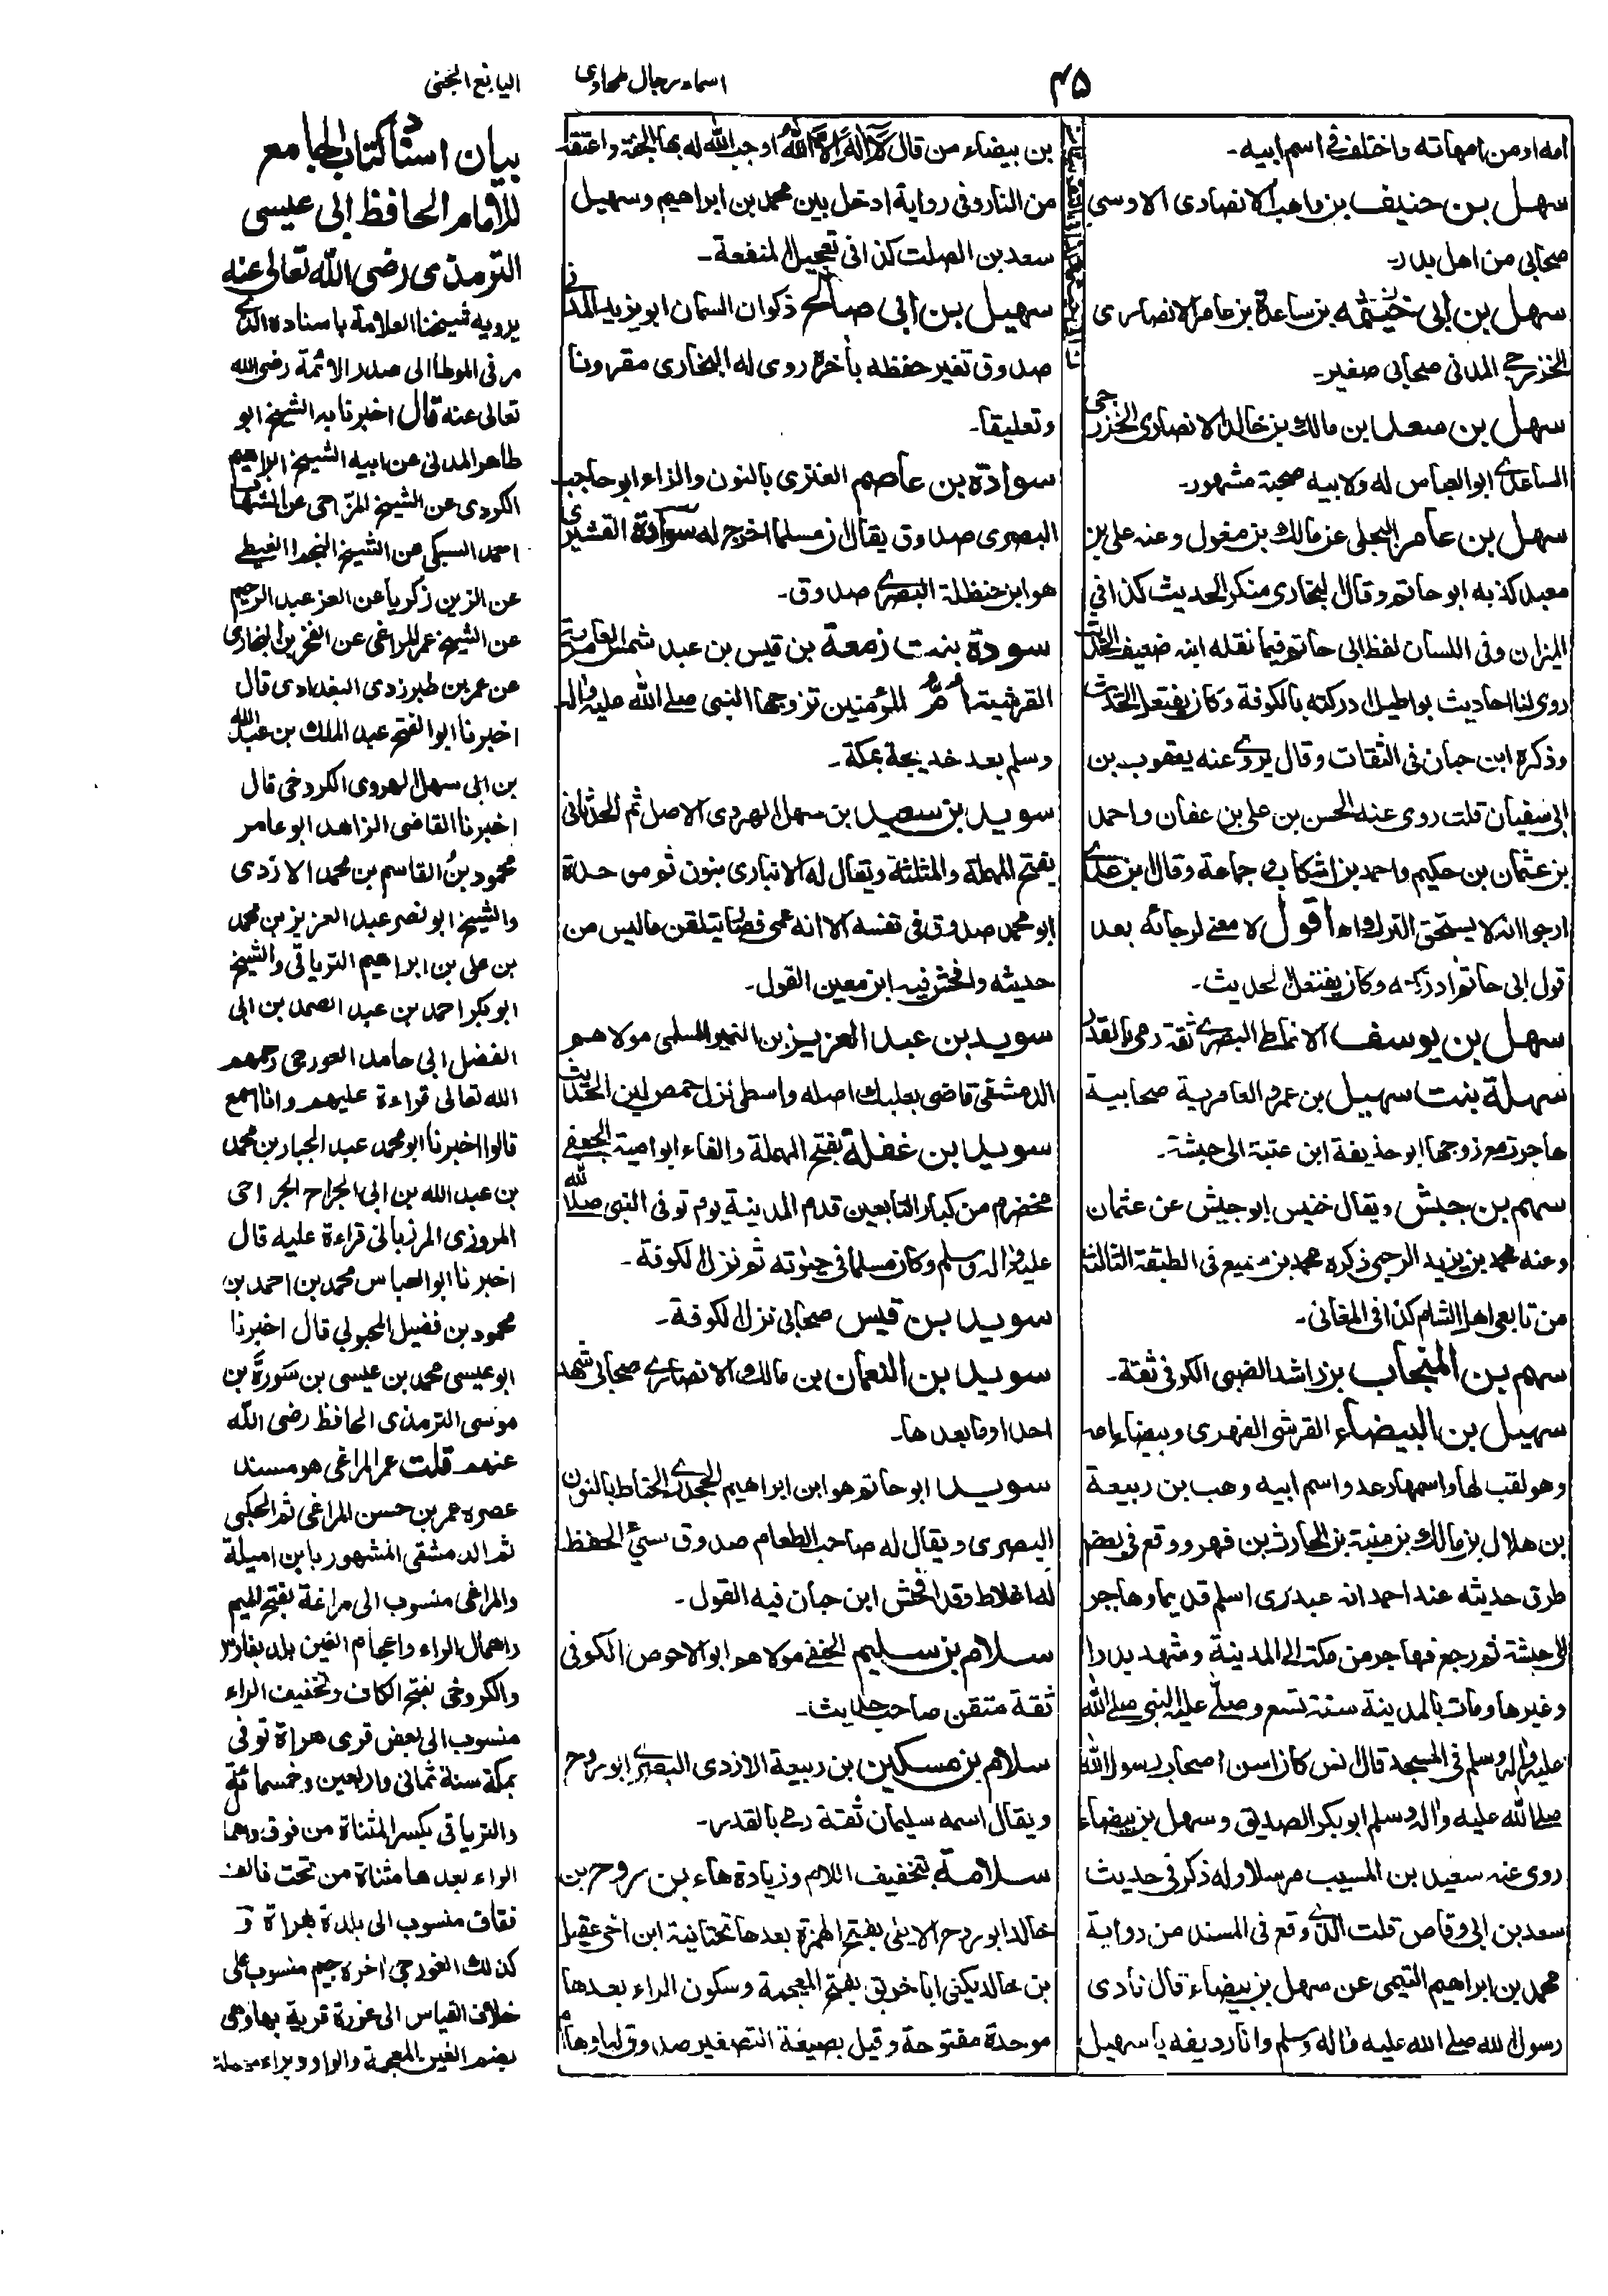 ٤٥
اسماء رجال طحاوی
اليانع الجنی
امه او من امهاته واختلف في اسم ابيه۔
سهل بن حنيف بن واهب الانصاری الاوسی
صحابی من اهل بدر۔
سهل بن ابی خيثمه بن ساعدة بن عامر الانصاری
الخزرجی المدنی صحابی صغير۔
سهل بن سعد ابن مالك بن خالد الانصاری الخزرجی
الساعدی ابو العباس له ولابيه صحبة مشهور۔
سهل بن عامر البجلی عن مالك بن مغول وعنه علی بن
معبد كذبه ابو حاتم وقال البخاری منكر الحديث كذا فی
الميزان وفی اللسان لفظ ابی حاتم فيما نقله ابنه ضعيف الحديث
روی لنا احاديث بواطيل ادركته بالكوفة وكان يفتعل الحديث
وذكره ابن حبان فی الثقات وقال يروی عنه يعقوب بن
ابی سفيان قلت روی عنه الحسن بن علی بن عفان واحمد
بن عثمان بن حكيم واحمد بن اشكاب وجماعة وقال ابن عدی
ارجو انه لا يستحق الترك اه اقول لا معنے لرجائه بعد
قول ابی حاتم ادركته وكان يفتعل الحديث۔
سهل بن يوسف الانماطی البصری ثقة رمی بالقدر
سهلة بنت سهيل بن عمرو العامرية صحابية
هاجرت مع زوجها ابو حذيفة ابن عتبة الی حبشة۔
سهم بن حبش ويقال خنيس ابو حبيش عن عثمان
وعنه محمد بن يزيد الرحبی ذكره محمد بن سميع فی الطبقة الثالثة
من تابعی اهل الشام كذا فی المغانی۔
سهم بن المنجاب بن راشد الضبی الكوفی ثقة۔
سهيل بن البيضاء القرشی الفهری وبيضاء امه
وهو لقب لها واسمها دعد واسم ابيه وهب بن ربيعة
بن هلال بن مالك بن منبة بن الحارث بن فهر ووقع فی بعض
طرق حديثه عند احمد انه عبدری اسلم قديما وهاجر
الی حبشة ثم رجع فهاجر من مكة الی المدينة وشهد بدرا
وغيرها ومات بالمدينة سنة تسع وصلی عليه النبی صلے الله
عليه واله وسلم فی المسجد قال انس كان اسن اصحاب رسول الله
صلے الله عليه واله وسلم ابو بكر الصديق وسهل بن بيضاء
روی عنه سعيد بن المسيب مرسلا وله ذكر فی حديث
سعد بن ابی وقاص قلت الذی وقع فی المسند من رواية
محمد بن ابراهيم التيمی عن سهل بن بيضاء قال نادی
رسول الله صلے الله عليه واله وسلم وانا رديفه يا سهيل
بن بيضاء من قال لا اله الا الله اوجب الله له بها الجنة واعتقه
من النار وفی رواية ادخل بين محمد بن ابراهيم وسهيل
سعد بن الصلت كذا فی تعجيل المنفعة۔
سهيل بن ابی صالح ذكوان السمان ابو يزيد المدنی
صدوق تغير حفظه بأخرة روی له البخاری مقرونا
وتعليقا۔
سوادة بن عاصم العنزی بالنون والزاء ابو حاجب
البصری صدوق يقال ان مسلما اخرج له سوادة القشيری
هو ابن حنظلة البصری صدوق۔
سودة بنت زمعة بن قيس بن عبد شمس العامرية
القرشية ام المؤمنين تزوجها النبی صلے الله عليه واله
وسلم بعد خديجة بمكة۔
سويد بن سعيد بن سهل الهروی الاصل ثم الحدثانی
بفتح المهملة والمثلثة ويقال له الانباری بنون ثم موحدة
ابو محمد صدوق فی نفسه الا انه عمی فصار يتلقن ما ليس من
حديثه وافحش فيه ابن معين القول۔
سويد بن عبد العزيز بن النمير السلمی مولاهم
الدمشقی قاضی بعلبك اصله واسطی نزل حمص لين الحديث
سويد بن غفلة بفتح المهملة والفاء ابو امية الجعفی
مخضرم من كبار التابعين قدم المدينة يوم توفی النبی صلی الله
عليه واله وسلم وكان مسلما فی حيوته ثم نزل الكوفة۔
سويد بن قيس صحابی نزل الكوفة۔
سويد بن النعمان بن مالك الانصاری صحابی شهد
احدا وما بعدها۔
سويد ابو حاتم هو ابن ابراهيم الجحدری الحناط بالنون
البصری ويقال له صاحب الطعام صدوق سيئ الحفظ
له اغلاط وقد افحش ابن حبان فيه القول۔
سلام بن سليم الحنفی مولاهم ابو الاحوص الكوفی
ثقة متقن صاحب حديث۔
سلام بن مسكين بن ربيعة الازدی البصری ابو روح
ويقال اسمه سليمان ثقة رمی بالقدر۔
سلامة بتخفيف اللام وزيادة هاء بن روح بن
خالد ابو روح الايلی بفتح الهمزة بعدها تحتانية ابن اخی عقيل
بن خالد يكنی ابا خربق بفتح المعجمة وسكون الراء بعدها
موحدة مفتوحة وقيل بصيغة التصغير صدوق له اوهام
بيان اسناد كتاب الجامع
للامام الحافظ ابی عيسی
الترمذی رضی الله تعالی عنه
يرويه شيخنا العلامة باسناده الذی
مر فی الموطا الی صدر الائمة رضی الله
تعالی عنه قال اخبرنا به الشيخ ابو
طاهر المدنی عن ابيه الشيخ ابراهيم
الكردی عن الشيخ المزاحی عن الشهاب
احمد السبكی عن الشيخ النجم الغيطی
عن الزين زكريا عن العز عبد الرحيم
عن الشيخ عمر المراغی عن الفخر بن البخاری
عن عمر بن طبرزدی البغدادی قال
اخبرنا ابو الفتح عبد الملك بن عبد الله
بن ابی سهل الهروی الكروخی قال
اخبرنا القاضی الزاهد ابو عامر
محمود بن القاسم بن محمد الازدی
والشيخ ابو نصر عبد العزيز بن محمد
بن علی بن ابراهيم الترياقی والشيخ
ابو بكر احمد بن عبد الصمد بن ابی
الفضل ابی حامد الغورجی رحمهم
الله تعالی قراءة عليهم وانا اسمع
قالوا اخبرنا ابو محمد عبد الجبار بن محمد
بن عبد الله بن ابی الجراح الجراحی
المروزی المرزبانی قراءة عليه قال
اخبرنا ابو العباس محمد بن احمد بن
محمود بن فضيل المحبوبی قال اخبرنا
ابو عيسی محمد بن عيسی بن سورة بن
موسی الترمذی الحافظ رضی الله
عنهم قلت عمر المراغی هو مسند
عصره عمر بن حسن المراغی ثم الحلبی
ثم الدمشقی المشهور بابن اميلة
والمراغی منسوب الی مراغة بفتح الميم
واهمال الراء واعجام الغين بلد بفارس
والكروخی بفتح الكاف وتخفيف الراء
منسوب الی بعض قری هراة توفی
بمكة سنة ثمانی واربعين وخمسمائة
والترياقی بكسر المثناة من فوق واهمال
الراء بعدها مثناة من تحت فالف
نقاف منسوب الی بلدة بهراة و
كذلك الغورجی اخره جيم منسوب علی
خلاف القياس الی غورة قرية بها وهی
بضم الغين المعجمة والواو وبراء مهملة